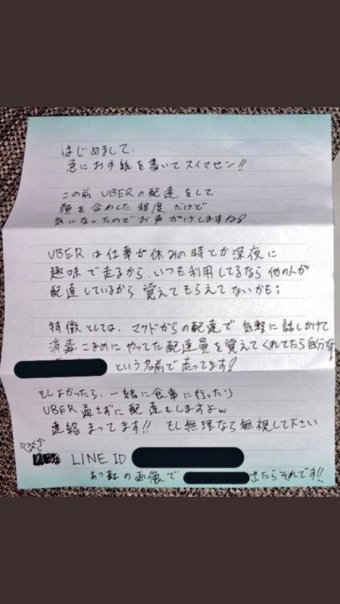 はじめまして、
急にお手紙を書いてスイマセン!!
この前 UBERの配達をして
顔を合わした程度だけど
気になったのでお声がけしますね
UBERは仕事が休みの時とか深夜に
趣味で走るから、いつも利用してるなら他の人が
配達しているから覚えてもらえてないかも
特徴としては、マクドからの配達で気軽に話しかけて
消毒こまめにやってた配達員を覚えてくれてたら自分
という名前で走ってます
もしよかったら、一緒に食事に行ったり
UBER 直さずに配達もしますよw
連絡まってます!! もし無理なら無視して下さい
LINE ID
の画像で 出たらそれです!!